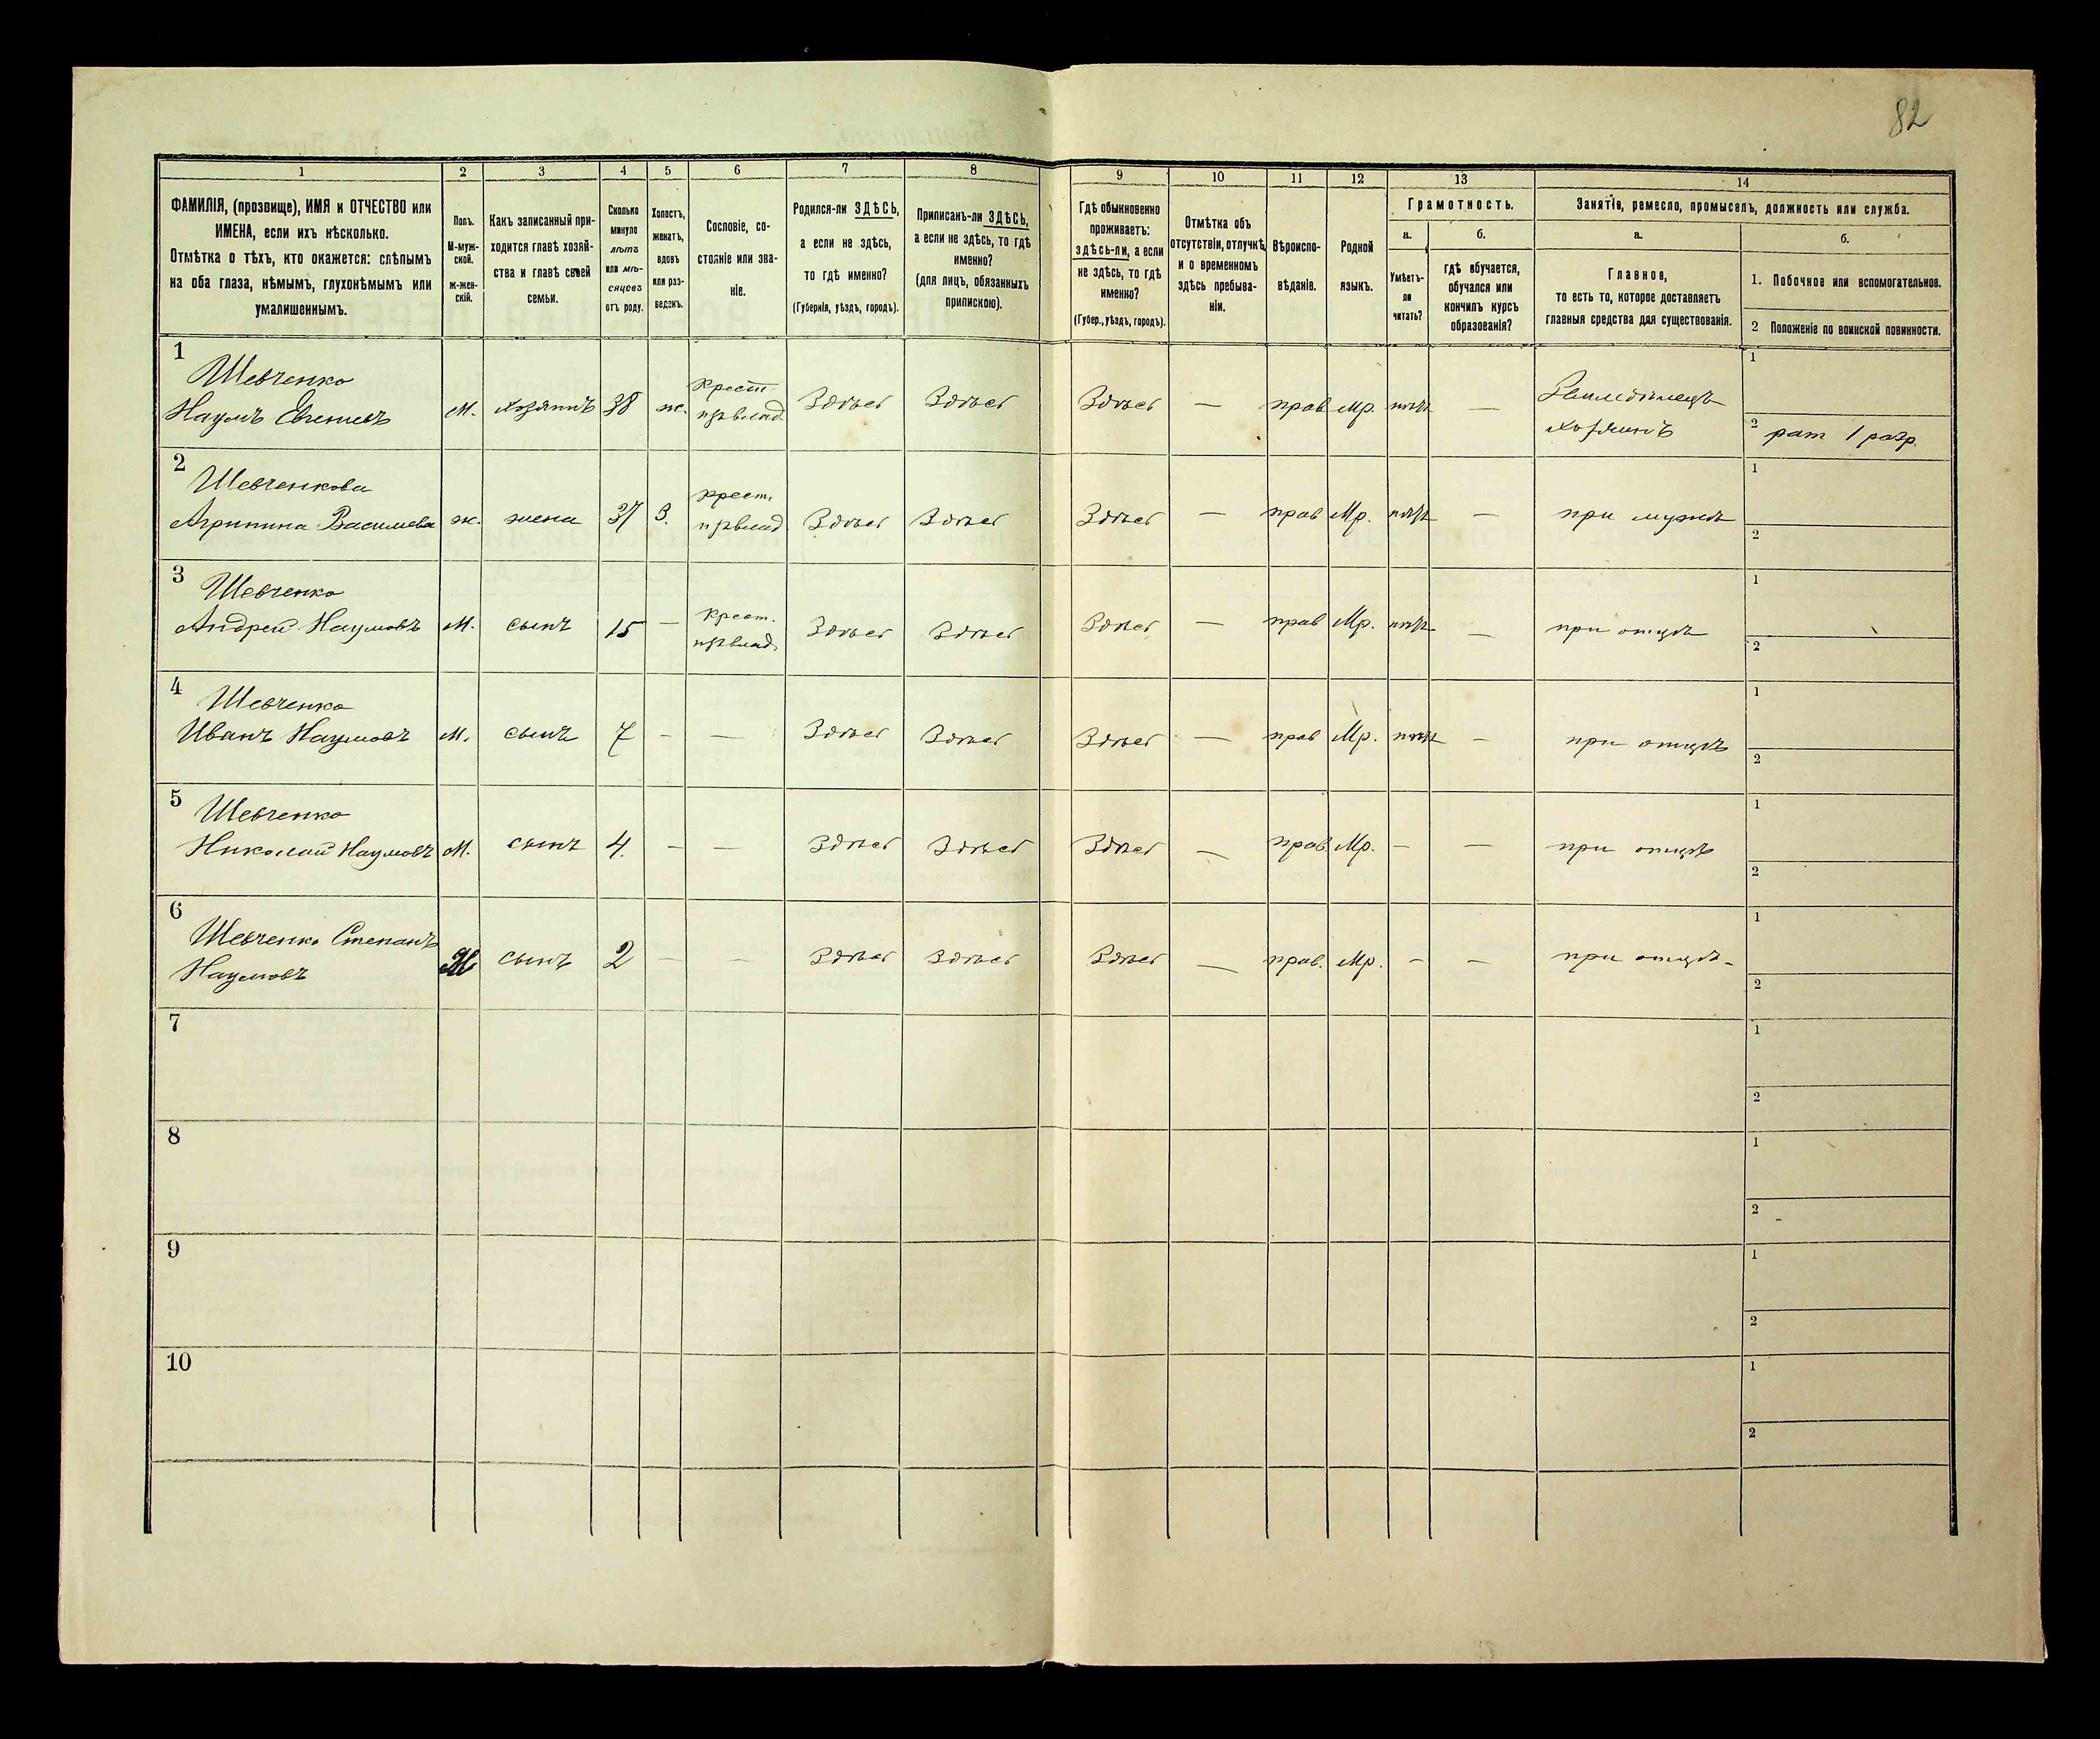 82
1 2 3 4 5 6 7 8 9 10 11 12 13 14
ФАМИЛІЯ, (прозвище), ИМЯ и ОТЧЕСТВО или
ИМЕНА, если ихъ нѣсколько.
Отмѣтка о тѣхъ, кто окажется: слѣпымъ
на оба глаза, нѣмымъ, глухонѣмымъ или
умалишеннымъ.
Полъ.
М-муж-
ской.
Ж-жен-
скій.
Какъ записанный при-
ходится главѣ хозяй-
ства и главѣ своей
семьи.
Сколько
минуло
лѣтъ
или мѣ-
сяцевъ
отъ роду.
Холостъ,
женатъ,
вдовъ
или раз-
веденъ.
Сословіе, со-
стояніе или зва-
ніе.
Родился-ли ЗДѢСЬ,
а если не здѣсь,
то гдѣ именно?
(Губернія, уѣздъ, городъ).
Приписанъ-ли ЗДѢСЬ,
а если не здѣсь, то гдѣ
именно?
(для лицъ, обязанныхъ
припискою).
Гдѣ обыкновенно
проживаетъ:
здѣсь-ли, а если
не здѣсь, то гдѣ
именно?
(Губер., уѣздъ, городъ).
Отмѣтка объ
отсутствіи, отлучкѣ
и о временномъ
здѣсь пребыва-
ніи.
Вѣроиспо-
вѣданіе.
Родной
языкъ.
Грамотность.
а.
Умѣетъ-
ли
читать?
б.
гдѣ обучается,
обучался или
кончилъ курсъ
образованія?
Занятіе, ремесло, промыселъ, должность или служба.
а.
Главное,
то есть то, которое доставляетъ
главныя средства для существованія.
б.
1. Побочное или вспомогательное.
2 Положеніе по воинской повинности.
1
Шевченко
Наумъ
м. хозяинъ 38 ж. крест Здѣсь Здѣсь Здѣсь — прав мр. — Земледѣлецъ
хозяинъ
1
2 рат 1 разр.
2
Шевченкова
Агрипина Василиева ж. жена 37 З. крест. Здѣсь Здѣсь Здѣсь — прав Мр. — при мужѣ
1
2
3
Шевченко
Андрей Наумовъ М. сынъ 15 — крест. Здѣсь Здѣсь Здѣсь — прав Мр. — при отцѣ
1
2
4
Шевченко
Иванъ Наумовъ М. сынъ 7 — — Здѣсь Здѣсь Здѣсь — прав Мр. — при отцѣ
1
2
5
Шевченко
Николай Наумовъ М. сынъ 4. — — Здѣсь Здѣсь Здѣсь — прав. Мр. — — при отцѣ
1
2
6
Шевченко Степанъ
Наумовъ М сынъ 2 — — Здѣсь Здѣсь Здѣсь — прав. Мр. — — при отцѣ-
1
2
7
1
2
8
1
2
9
1
2
10
1
2